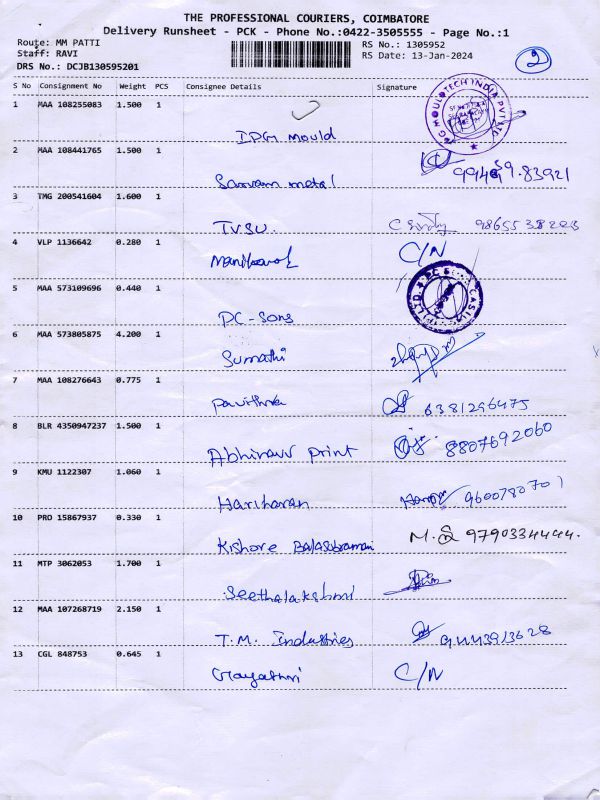 THE PROFESSIONAL COURIERS, COIMBATORE
Delivery Runsheet - PCK - Phone No.:0422-3505555 - Page No.:1
Route: MM PATTI
Staff: RAVI
DRS No.: DCJB130595201
RS No.: 1305952
RS Date: 13-Jan-2024
2
S No Consignment No Weight PCS Consignee Details Signature
1 MAA 108255083 1.500 1
IPG mould
2 MAA 108441765 1.500 1
Sarvam metal
3 TMG 200541604 1.600 1
TVSU.
4 VLP 1136642 0.280 1
C/N
5 MAA 573109696 0.440 1
PC-Sons
6 MAA 573805875 4.200 1
Sumathi
7 MAA 108276643 0.775 1
Pavithra 6381296475
8 BLR 4350947237 1.500 1
Abhinav Print 8807692060
9 KMU 1122307 1.060 1
Hariharan 9600780701
10 PRO 15867937 0.330 1
Kishore Balasubramani 9790334444.
11 MTP 3062053 1.700 1
Seethalakshmi
12 MAA 107268719 2.150 1
T.M. Industries 9443913628
13 CGL 848753 0.645 1
Gayathri C/N